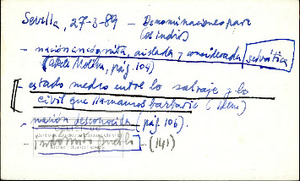 Sevilla, 27-3-89 - Denominaciones para
los indios
- nación incógnita, aislada y considerada selvática
(Abate Molina, pág. 104)
- estado medio entre lo salvaje y lo
civil que llamamos barbarie (idem)
- nación desconocida (pág. 106)
- pueblo - (141)